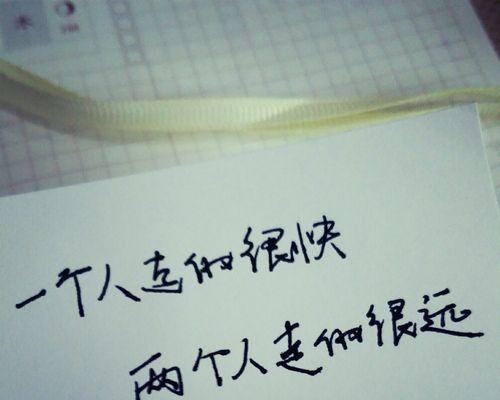 米
一个人走的很快
两个人走的很远